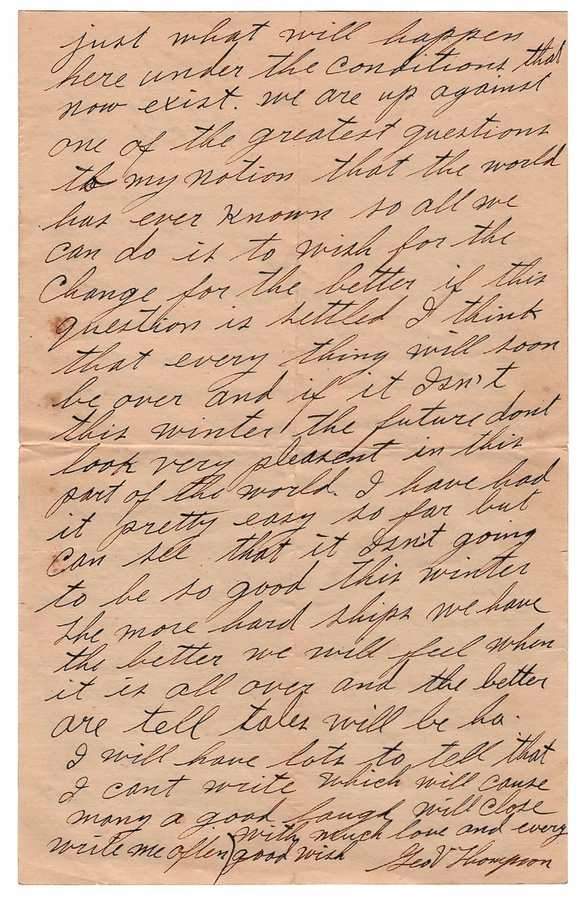 just what will happen
here under the conditions that
now exist. we are up against
one of the greatest questions
to my notion that the world
has ever known so all we
can do is to wish for the
change for the better if this
question is settled I think
that every thing will soon
be over and if it Isn't
this winter the future dont
look very pleasent in this
part of the world. I have had
it pretty easy so far but
can see that it Isn't going
to be so good this winter
the more hard ships we have
the better we will feel when
it is all over and the better
are tell tales will be ha.
I will have lots to tell that
I cant write which will cause
many a good laugh will close
with much love and every
write me often) good wish Geo V Thompson